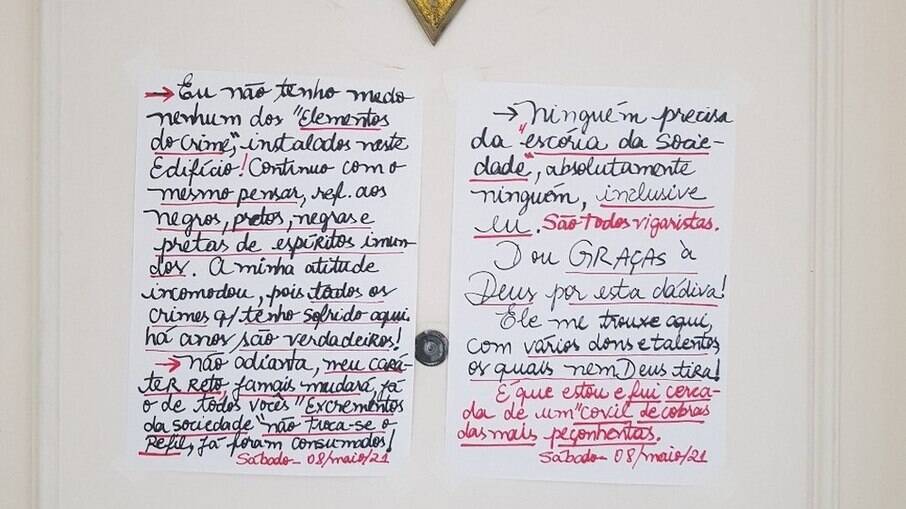 → Eu não tenho medo
nenhum dos "Elementos
do Crime", instalados neste
Edifício! Continuo com o
mesmo pensar, ref. aos
negros, pretos, negras e
pretas de espíritos imun
dos. A minha atitude
incomodou, pois todos os
crimes q/ tenho sofrido aqui
há anos são verdadeiros!
→ Não adianta, meu cará-
ter reto, jamais mudará, já
o de todos vocês "Excrementos
da sociedade" não troca-se o
Refil, já foram consumados!
Sábado - 08/maio/21
→ Ninguém precisa
da "escória da Socie-
dade", absolutamente
ninguém, inclusive
eu. São todos vigaristas.
Dou GRAÇAS à
Deus por esta dádiva!
Ele me trouxe aqui,
com vários dons e talentos
os quais nem Deus tira!
É que estou e fui cerca-
da de um "covil de cobras
das mais peçonhentas.
Sábado - 08/maio/21